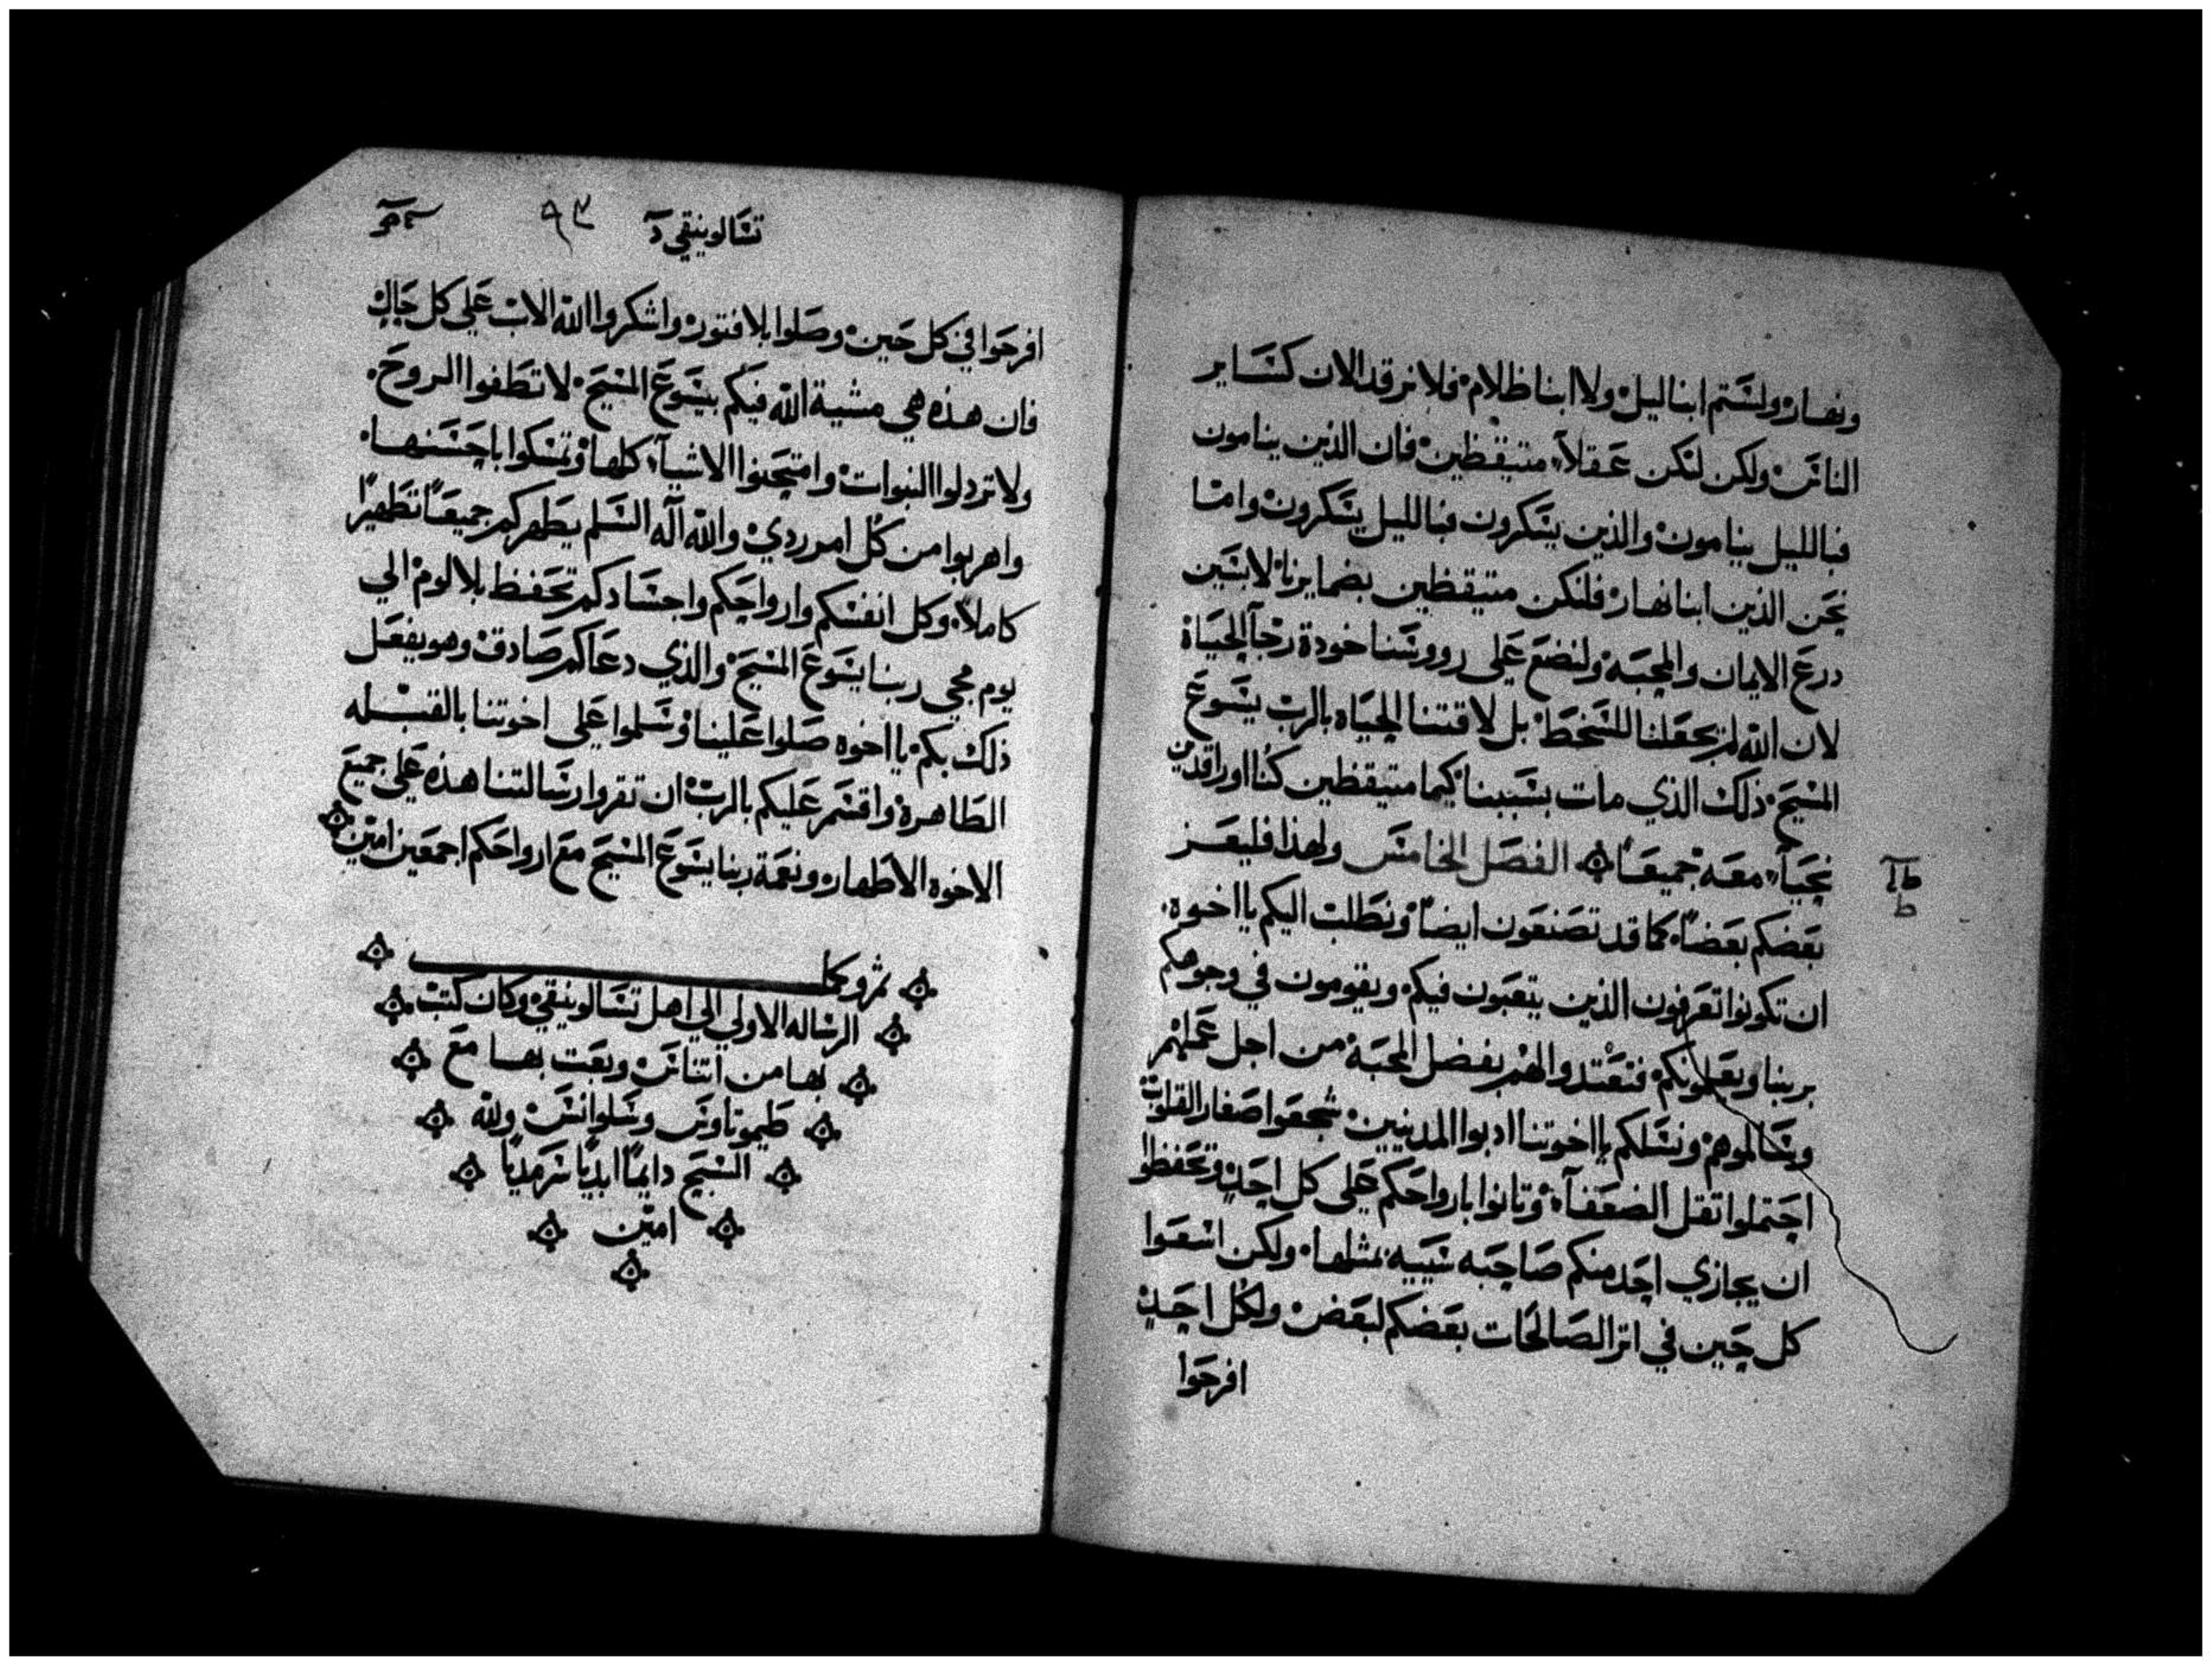 ونهار ولستم ابنا ليل ولا ابنا ظلام فلا نرقد الان كساير
الناس ولكن لنكن عقلآ متيقظين فان الذين ينامون
فبالليل ينامون والذين يسكرون فبالليل يسكرون واما
نحن الذين ابنا نهار فلنكن متيقظين بضمايرنا لابسين
درع الايمان والمحبه ولنضع على رووسنا خودة رجآ الحياة
لان الله لم يجعلنا للسخط بل لاقتنا الحياه بالرب يسوع
المسيح ذلك الذي مات بسببنا كيما متيقظين كنا او راقدين
نحيآ معه جميعاً الفصل الخامس ولهذا فليعز
بعضكم بعضاً كما قد تصنعون ايضاً ونطلب اليكم يا اخوه
ان تكونوا تعرفون الذين يتعبون فيكم ويقومون في وجوهكم
بربنا ويعلمونكم فتعتدوا لهم بفضل المحبة من اجل عملهم
وسالموهم ونسلكم يا اخوتنا ادبوا المدنيين شجعوا صغار القلوب
احتملوا تقل الضعفآ وتانوا بارواحكم على كل احد وتحفظوا
ان يجازي احد منكم صاحبه سييه بمثلها ولكن اسعوا
كل حين في اثر الصالحات بعضكم لبعض ولكل احد
افرحوا
تسالونيقي
٩٣
افرحوا في كل حين وصلوا بلا فتور واشكروا الله الاب على كل حال
فان هذه هي مشية الله فيكم بيسوع المسيح لا تطفوا الروح
ولا تردلوا النبوات وامتحنوا الاشيآ كلها وتمسكوا باحسنها
واهربوا من كل امر ردي والله اله السلم يطهركم جميعاً تطهيراً
كاملاً وكل انفسكم وارواحكم واجسادكم تحفظ بلا لوم الي
يوم مجي ربنا يسوع المسيح والذي دعاكم صادق وهو يفعل
ذلك بكم يا اخوه صلوا علينا وسلموا على اخوتنا بالقبله
الطاهرة واقسم عليكم بالرب ان تقروا رسالتنا هذه على جميع
الاخوه الاطهار ونعمة ربنا يسوع المسيح مع ارواحكم اجمعين امين
الرساله الاولي الي اهل تسالونيقي وكان كتب
بها من اتناس وبعت بها مع
طيموتاوس وسلوانس ولله
السبح دايماً ابدياً سرمدياً
امين